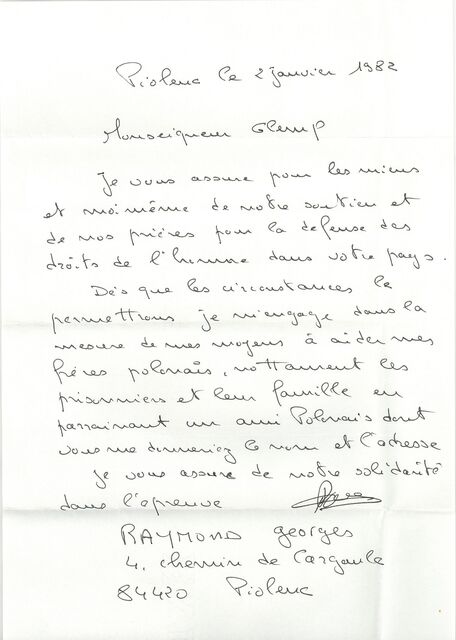 Piolenc le 2 janvier 1982
Monseigneur Glemp
Je vous assure pour les miens
et moi même de notre soutien et
de nos prières pour la defense des
droits de l'homme dans votre pays.
Dès que les circonstances le
permettrons je m'engage dans la
mesure de mes moyens à aider mes
frères polonais, nottament les
prisonniers et leur famille en
parrainant un ami Polonais dont
vous me donneriez le nom et l'adresse
je vous assure de notre solidarité
dans l'épreuve
RAYMOND Georges
4. chemin de
84420 Piolenc